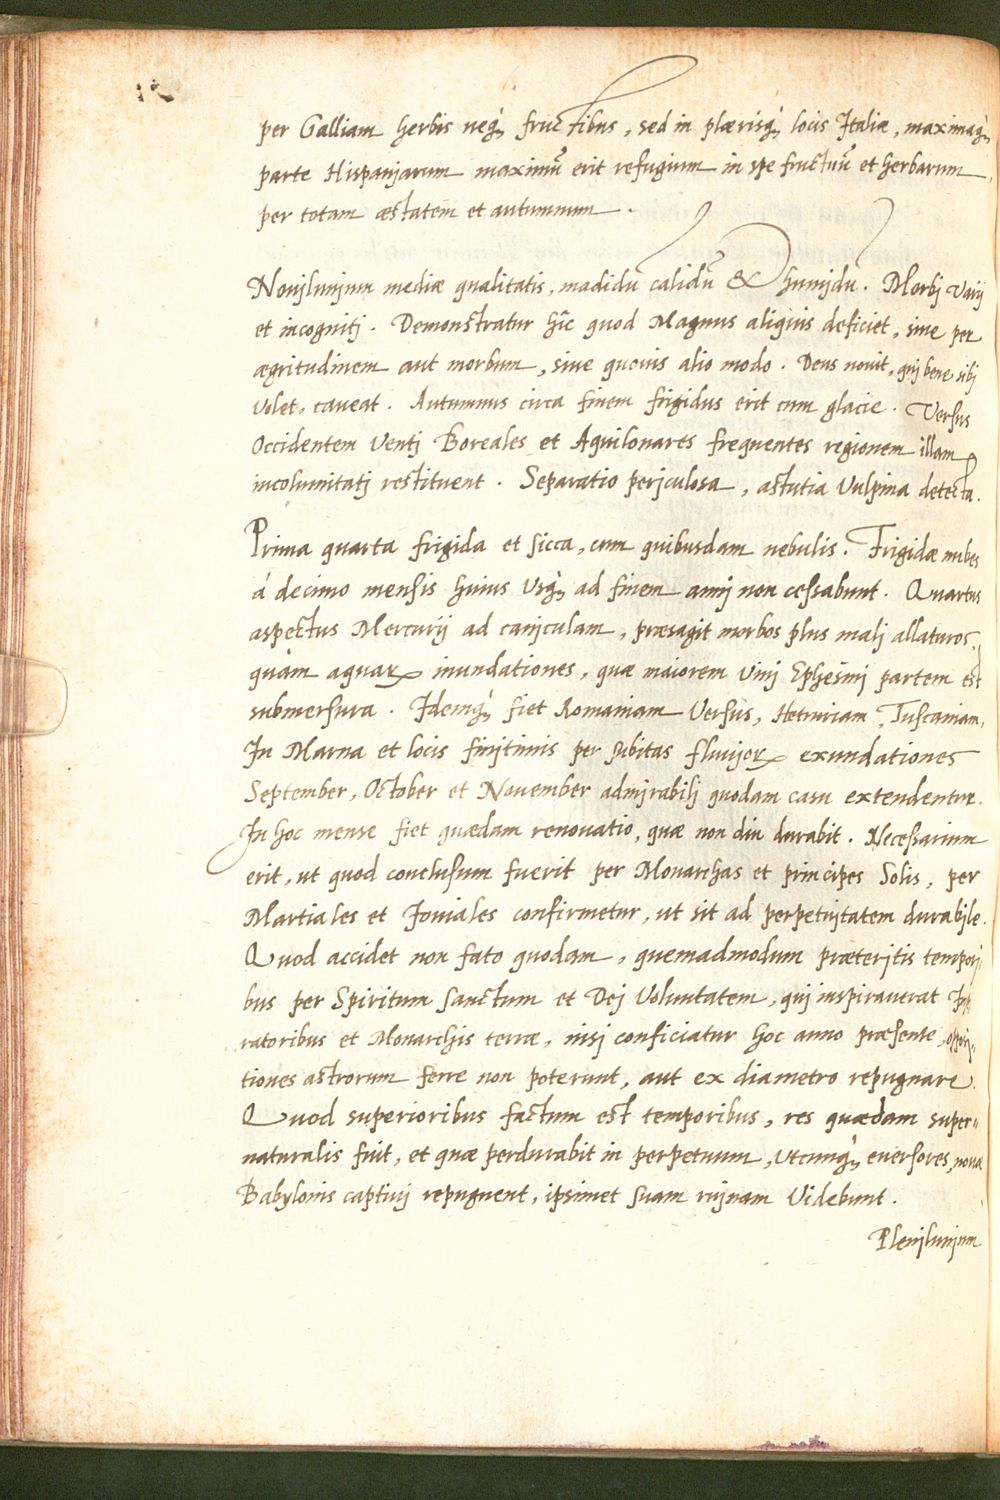 per Galliam herbis neq̀ꝫ fructibus, sed in plærisq̀ꝫ locis Italiæ, maximaq̀ꝫ
parte Hispanjarum maximū erit refugium in spe fructuū et herbarum
per totam æstatem et autumnum.
Novjlunjum mediæ qualitatis, madidū calidū & humjdū. Morbj varij
et incognitj. Demonstratur hîc quod Magnus aliquis deficiet, sive per
ægritudinem aut morbum, sive quovis alio modo. Deus novit, quj bene sibj
volet, caveat. Autumnus circa finem frigidus erit cum glacie. Versus
Occidentem ventj Boreales et Aquilonares frequentes regionem illam
incolumitatj restituent. Separatio perjculosa, astutia vulpina detecta.
Prima quarta frigida et sicca, cum quibusdam nebulis. Frigidæ nubes
á decimo mensis huius usq̀ꝫ ad finem annj non cessabunt. Quartus
aspectus Mercurij ad canjculam, præsagit morbos plus malj allaturos,
quàm aquaꝝ inundationes, quæ maiorem vinj Ephesinj partem est
submersura. Idemq̀ꝫ fiet Romaniam versus, Hetruriam, Tuscaniam,
In Marna et locis finjtimis per subitas fluvjoꝝ exundationes
September, October et November admjrabilj quodam casu extendentur.
In hoc mense fiet quædam renovatio, quæ non diu durabit. Necessarium
erit, ut quod conclusum fuerit per Monarchas et principes Solis, per
Martiales et Joviales confirmetur, ut sit ad perpetujtatem durabjle.
Quod accidet non fato quodam, quemadmodum præterjtis tempori
bus per Spiritum sanctum et Dej voluntatem, quj inspiraverat Impe
ratoribus et Monarchis terræ, nisj conficiatur hoc anno præsente, opposi-
tiones astrorum ferre non poterunt, aut ex diametro repugnare.
Quod superioribus factum est temporibus, res quædam super-
naturalis fuit, et quæ perdurabit in perpetuum, utcunq̀ꝫ eversores, novæ
Babylonis captivj repugnent, ipsimet suam rujnam videbunt.
Plenjlunjum